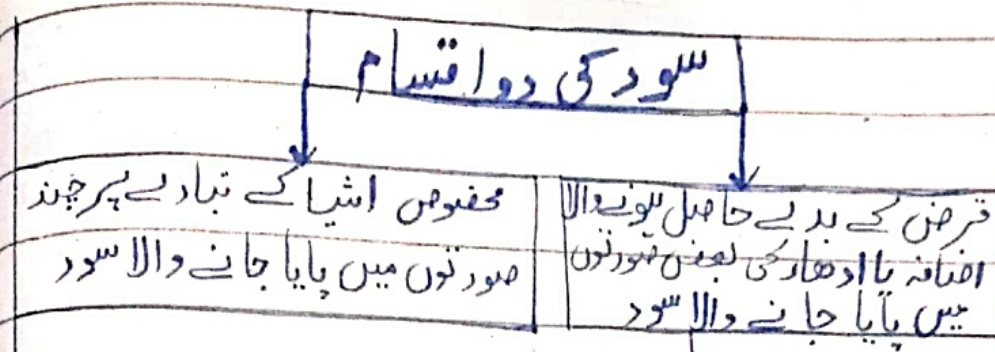 سود کی دو اقسام
قرض کے بدلے حاصل ہونے والا
اضافہ یا ادھار کی بعض صورتوں
میں پایا جانے والا سود
مخصوص اشیا کے تبادلے پر چند
صورتوں میں پایا جانے والا سود